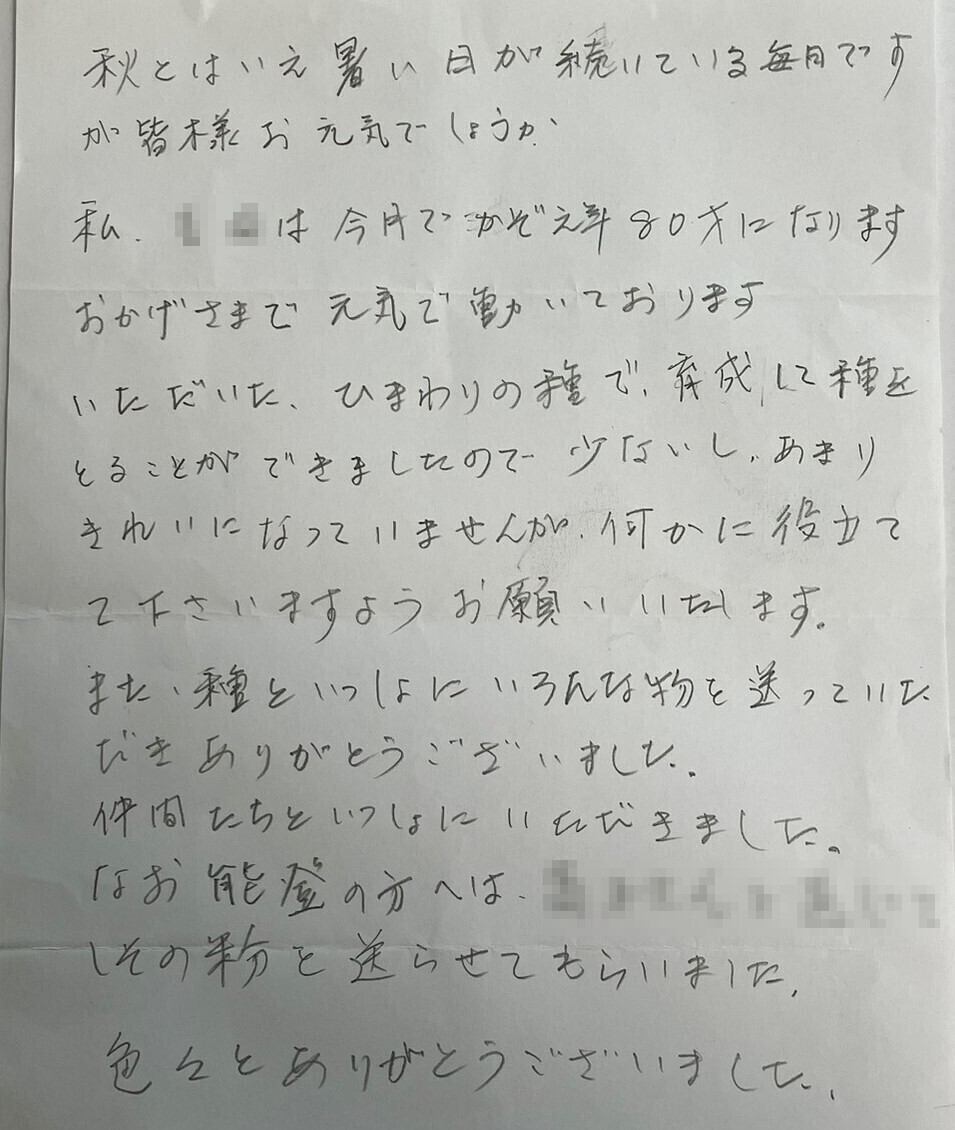 秋とはいえ暑い日が続いている毎日です
が皆様お元気でしょうか
私、は今月でかぞえ年80才になります
おかげさまで元気で働いております
いただいた、ひまわりの種で、育成して種を
とることができましたので少ないし、あまり
きれいになっていませんが、何かに役立て
て下さいますようお願いいたします。
また、種といっしょにいろんな物を送っていた
だきありがとうございました。
仲間たちといっしょにいただきました。
なお能登の方へは、
しその粉を送らせてもらいました、
色々とありがとうございました、